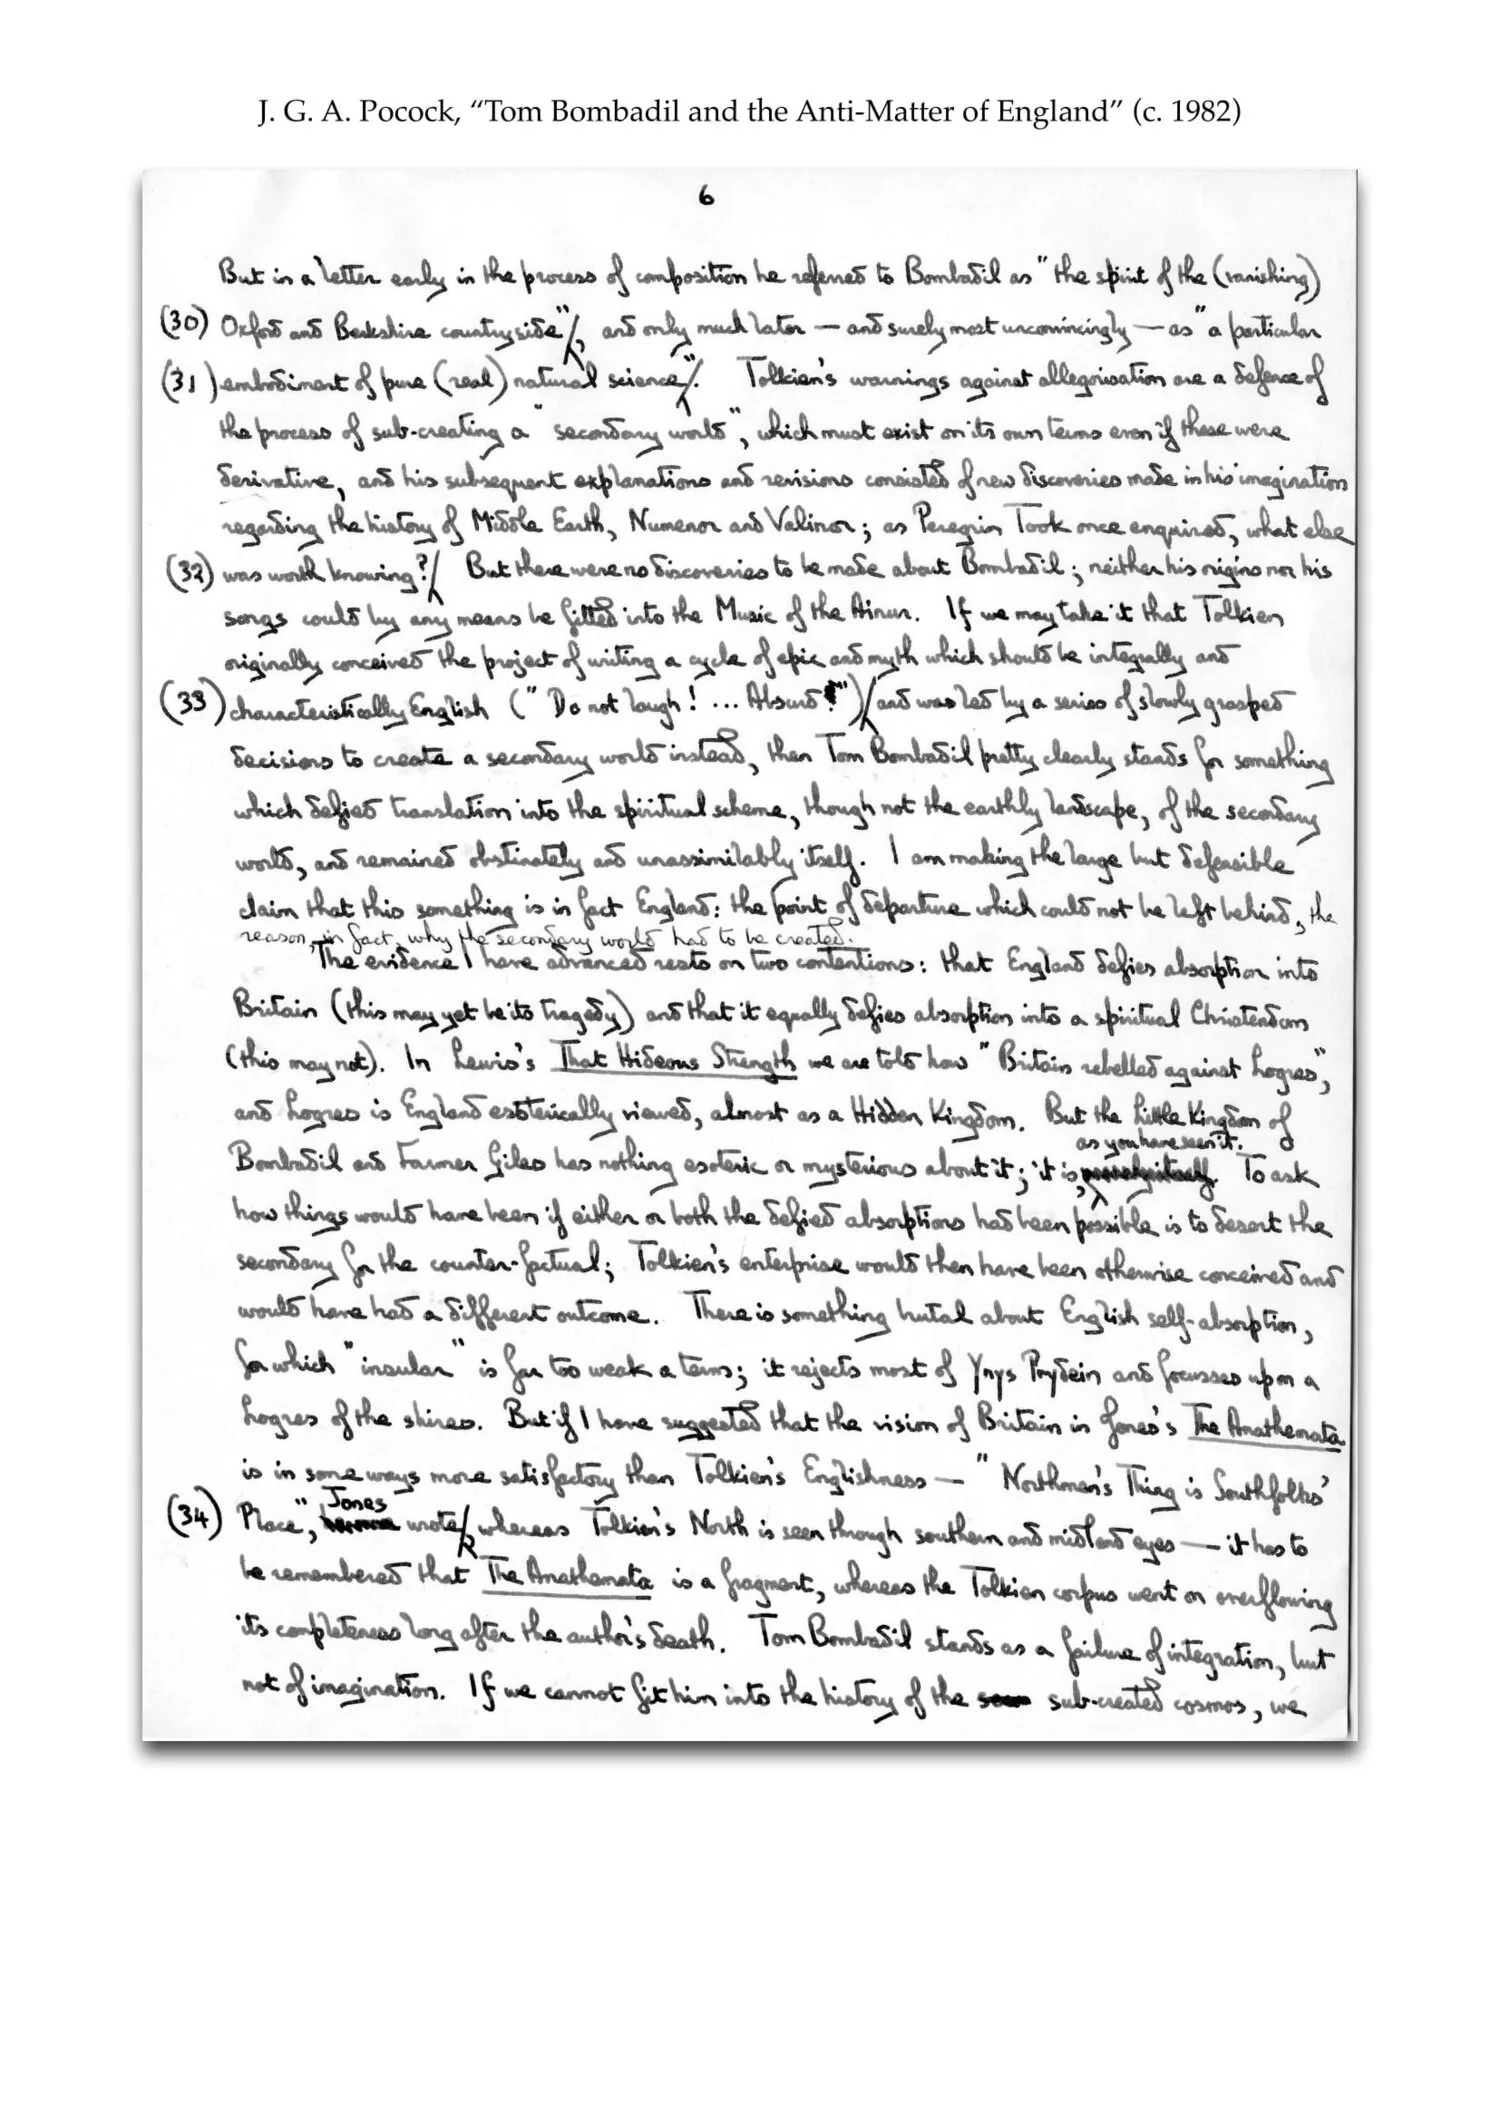 J. G. A. Pocock, “Tom Bombadil and the Anti-Matter of England” (c. 1982)
6
But in a letter early in the process of composition he referred to Bombadil as "the spirit of the (vanishing)
(30) Oxford and Berkshire countryside", and only much later — and surely most unconvincingly — as "a particular
(31) embodiment of pure (real) natural science". Tolkien's warnings against allegorisation are a defence of
the process of sub-creating a "secondary world", which must exist on its own terms even if these were
derivative, and his subsequent explanations and revisions consisted of new discoveries made in his imagination
regarding the history of Middle Earth, Numenor and Valinor; as Peregrin Took once enquired, what else
(32) was worth knowing? But there were no discoveries to be made about Bombadil; neither his origins nor his
songs could by any means be fitted into the Music of the Ainur. If we may take it that Tolkien
originally conceived the project of writing a cycle of epic and myth which should be integrally and
(33) characteristically English ("Do not laugh! ... Absurd!") and was led by a series of slowly grasped
decisions to create a secondary world instead, then Tom Bombadil pretty clearly stands for something
which defied translation into the spiritual scheme, though not the earthly landscape, of the secondary
world, and remained obstinately and unassimilably itself. I am making the large but defensible
claim that this something is in fact England: the point of departure which could not be left behind, the
reason, in fact, why the secondary world had to be created.
The evidence I have advanced rests on two contentions: that England defies absorption into
Britain (this may yet be its tragedy) and that it equally defies absorption into a spiritual Christendom
(this may not). In Lewis's That Hideous Strength we are told how "Britain rebelled against Logres",
and Logres is England esoterically viewed, almost as a Hidden Kingdom. But the Little Kingdom of
as you have seen it.
Bombadil and Farmer Giles has nothing esoteric or mysterious about it; it is, To ask
how things would have been if either or both the defied absorptions had been possible is to desert the
secondary for the counter-factual; Tolkien's enterprise would then have been otherwise conceived and
would have had a different outcome. There is something brutal about English self-absorption,
for which "insular" is far too weak a term; it rejects most of Ynys Prydein and focusses upon a
Logres of the shires. But if I have suggested that the vision of Britain in Jones's The Anathemata
is in some ways more satisfactory than Tolkien's Englishness — "Northmen's Thing is Southfolks'
Jones
(34) Place", wrote, whereas Tolkien's North is seen through southern and midland eyes — it has to
be remembered that The Anathemata is a fragment, whereas the Tolkien corpus went on overflowing
its completeness long after the author's death. Tom Bombadil stands as a failure of integration, but
not of imagination. If we cannot fit him into the history of the sub-created cosmos, we